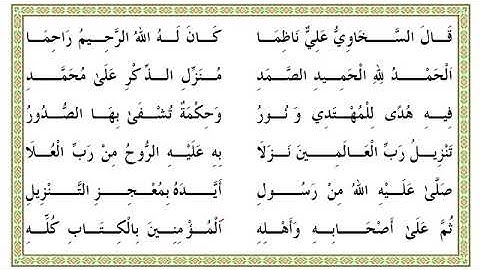 قَالَ السَّخَاوِيُّ عَلِيٌّ نَاظِمَا كَانَ لَهُ اللهُ الرَّحِيمُ رَاحِمَا
اَلْحَمْدُ لِلهِ الْحَمِيدِ الصَّمَدِ مُنَزِّلِ الذِّكْرِ عَلَىٰ مُحَمَّدِ
فِيهِ هُدًى لِلْمُهْتَدِي وَنُورُ وَحِكْمَةٌ تُشْفَىٰ بِهَا الصُّدُورُ
تَنْزِيلُ رَبِّ الْعَالَمِينَ نَزَلَا بِهِ عَلَيْهِ الرُّوحُ مِنْ رَبِّ الْعُلَا
صَلَّىٰ عَلَيْهِ اللهُ مِنْ رَسُولِ أَيَّدَهُ بِمُعْجِزِ التَّنْزِيلِ
ثُمَّ عَلَىٰ أَصْحَابِهِ وَأَهْلِهِ اَلْمُؤْمِنِينَ بِالْكِتَابِ كُلِّهِ